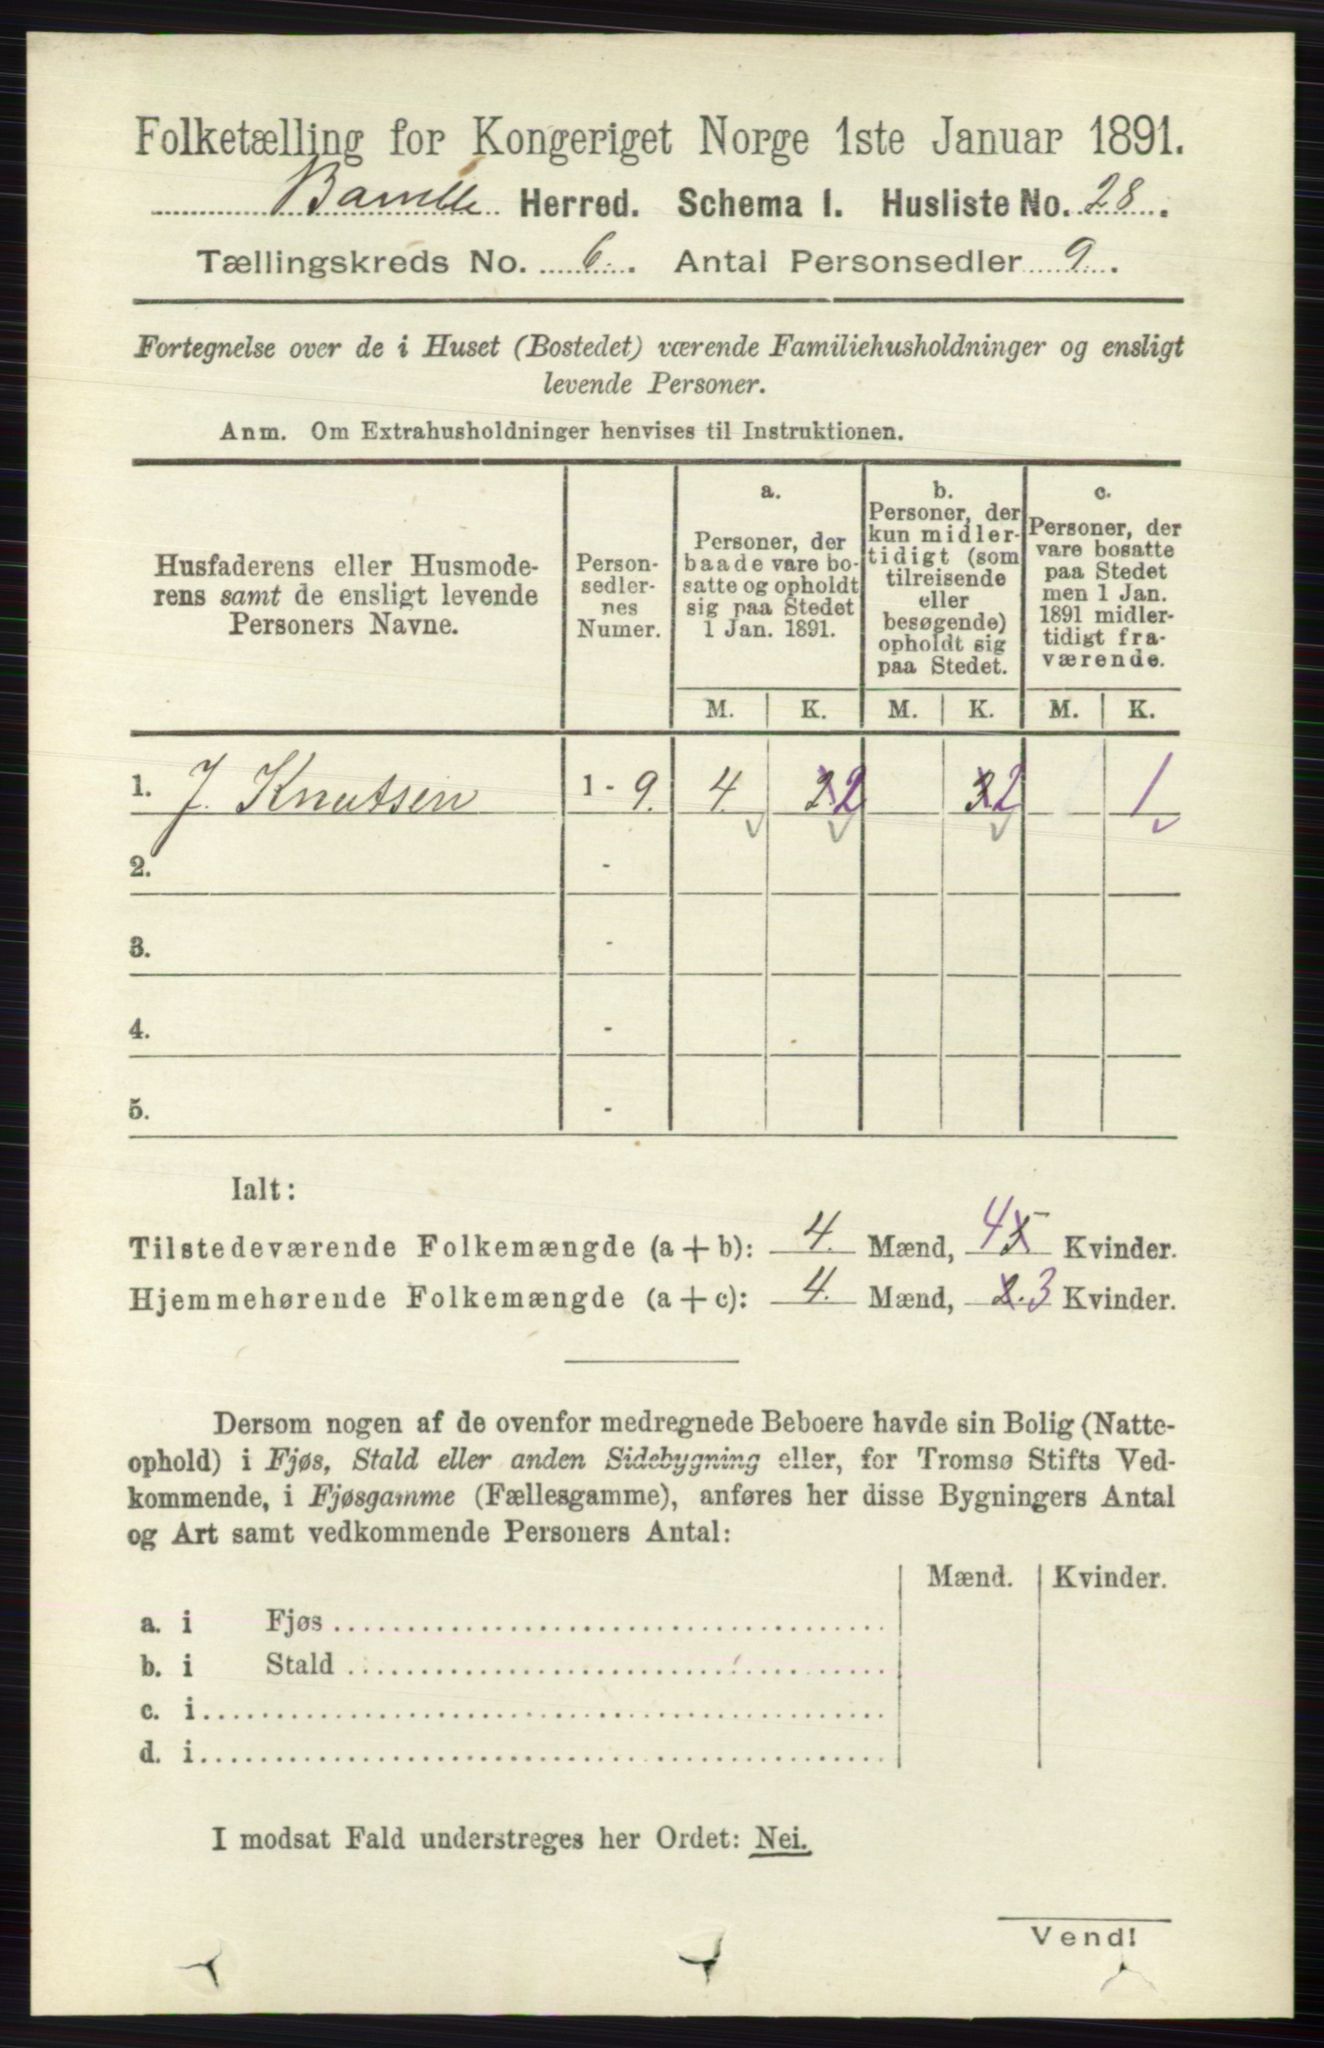 Folketælling for Kongeriget Norge 1ste Januar 1891.
Bamble Herred. Schema I. Husliste No. 28.
Tællingskreds No. 6. Antal Personsedler 9.
Fortegnelse over de i Huset (Bostedet) værende Familiehusholdninger og ensligt
levende Personer.
Anm. Om Extrahusholdninger henvises til Instruktionen.
Husfaderens eller Husmode-
rens samt de ensligt levende
Personers Navne.
Person-
sedler-
nes
Numer.
a.
Personer, der
baade vare bo-
satte og opholdt
sig paa Stedet
1 Jan. 1891.
b.
Personer, der
kun midler-
tidigt (som
tilreisende
eller
besøgende)
opholdt sig
paa Stedet.
c.
Personer, der
vare bosatte
paa Stedet
men 1 Jan.
1891 midler-
tidigt fra-
værende.
M. K. M. K. M. K.
1. J. Knutsen 1 - 9. 4. 2 2 1
2. -
3. -
4. -
5. -
Ialt:
Tilstedeværende Folkemængde (a + b): 4. Mænd, 4 5 Kvinder.
Hjemmehørende Folkemængde (a + c): 4. Mænd, 2. 3 Kvinder.
Dersom nogen af de ovenfor medregnede Beboere havde sin Bolig (Natte-
ophold) i Fjøs, Stald eller anden Sidebygning eller, for Tromsø Stifts Ved-
kommende, i Fjøsgamme (Fællesgamme), anføres her disse Bygningers Antal
og Art samt vedkommende Personers Antal:
Mænd. Kvinder.
a. i Fjøs
b. i Stald
c. i
d. i
I modsat Fald understreges her Ordet: Nei.
Vend!